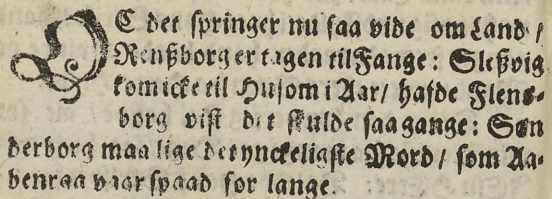 OC det springer nu saa vide om Land /
Renßborg er tagen til Fange: Sleßvig
kom icke til Husom i Aar/ hafde Flens-
borg vist det skulde saa gange: Søn
derborg maa lige det ynckeligste Mord / som Aa-
benraa vaar spaad for lange.